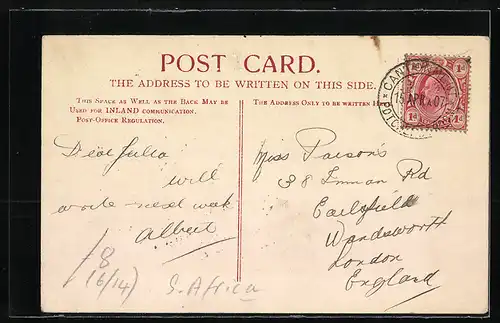 POST CARD.
THE ADDRESS TO BE WRITTEN ON THIS SIDE.
THIS SPACE AS WELL AS THE BACK MAY BE
USED FOR INLAND COMMUNICATION.
POST-OFFICE REGULATION.
Dear Julia
will
write next week
Albert
/8
(6/14)
S. Africa
THE ADDRESS ONLY TO BE WRITTEN
Miss Parsons
38 Inman Rd
Earlsfield
Wandsworth
London
England
15 APR 07
1d 1d